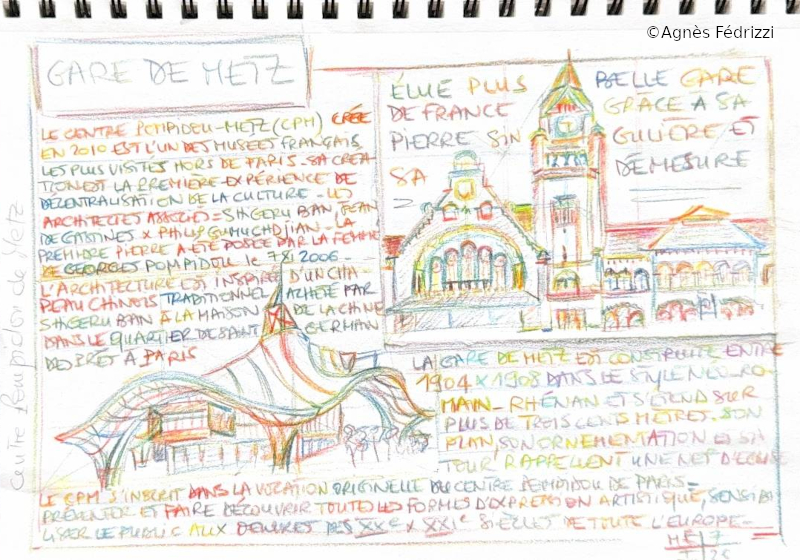 ©Agnès Fédrizzi
GARE DE METZ
LE CENTRE POMPIDOU-METZ (CPM) CRÉE
EN 2010 EST L'UN DES MUSÉES FRANÇAIS
LES PLUS VISITÉS HORS DE PARIS - SA CRÉA
TION EST LA PREMIÈRE EXPÉRIENCE DE
DÉCENTRALISATION DE LA CULTURE - LES
ARCHITECTES ASSOCIÉS = SHIGERU BAN, JEAN
DE GASTINES x PHILIP GUMUCHDJIAN - LA
PREMIÈRE PIERRE A ÉTÉ POSÉE PAR LA FEMME
DE GEORGES POMPIDOU le 2006 -
L'ARCHITECTURE EST INSPIRÉE D'UN CHA-
PEAU CHINOIS TRADITIONNEL ACHETÉ PAR
SHIGERU BAN À LA MAISON DE LA CHINE
DANS LE QUARTIER DE SAINT GERMAN
DES PRÉT À PARIS
Centre Pompidou de Metz
ÉLUE PLUS BELLE GARE
DE FRANCE GRÂCE À SA
PIERRE SIN GULIÈRE ET
SA DÉMESURE
LA GARE DE METZ EST CONSTRUITE ENTRE
1904 x 1908 DANS LE STYLE NÉO-RO-
MAIN - RHÉNAN ET S'ÉTEND SUR
PLUS DE TROIS CENTS MÈTRES. SON
PLAN, SON ORNEMENTATION ET SA
TOUR RAPPELLENT UNE NEF D'EGLISE
LE CPM S'INSCRIT DANS LA VOCATION ORIGINELLE DU CENTRE POMPIDOU DE PARIS -
PRÉSENTER ET FAIRE DÉCOUVRIR TOUTES LES FORMES D'EXPRESSION ARTISTIQUE, SENSIBI
LISER LE PUBLIC AUX OEUVRES DES XXe x XXIe SIÈCLES DE TOUTE L'EUROPE -
METZ